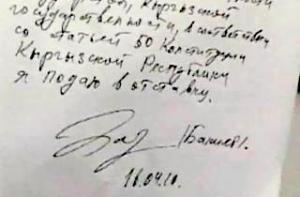 Кыргызской
государственности, в соответствии
со статьей 50 Конституции
Кыргызской Республики
я подаю в отставку.
/Бакиев/.
16.04.10.